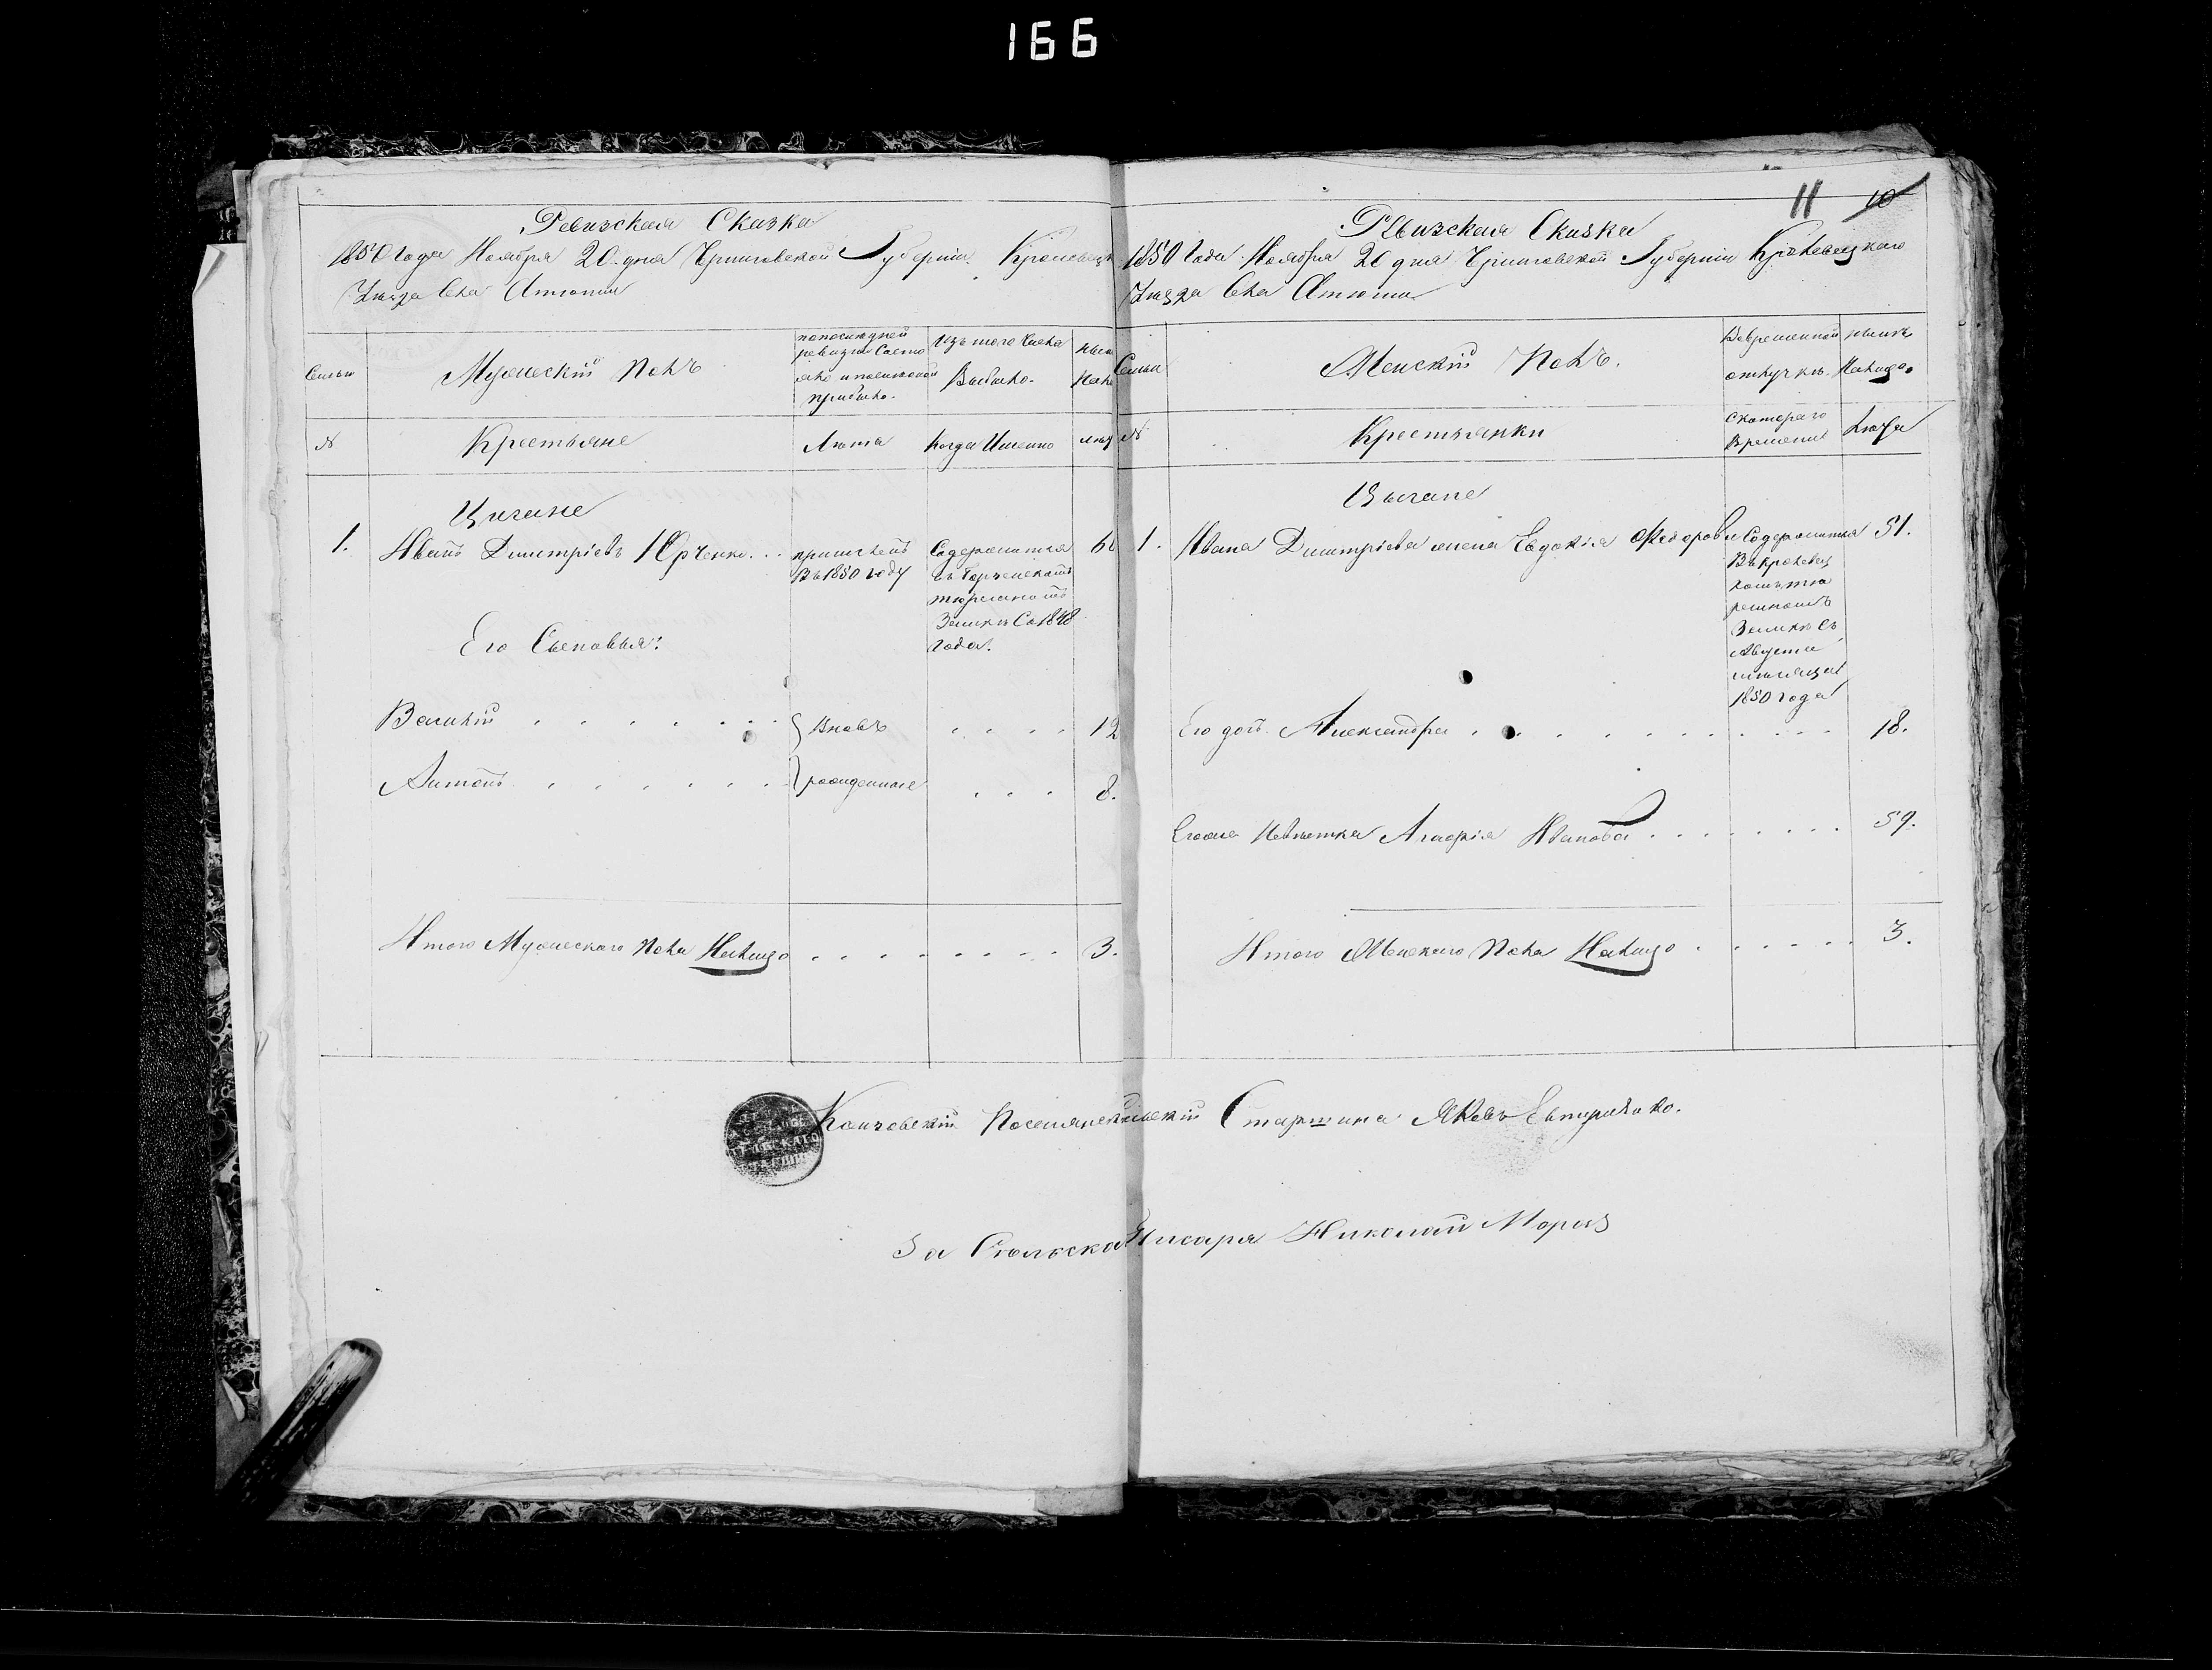 166
Ревизская Сказка
1850 года Ноября 20 дня Черниговской Губернии Кролевецк
Уезда Села
Семьи
Мужескій Полъ
по последней
ревизіи Состо
яло и после оной
прибыло.
Изъ того числа
Выбыло.
ныне
Нали
№
Крестьяне
Лѣта
Когда Именно
лѣта
Цигане
1.
Иванъ Димитріевъ Юрченко . .
причисленъ
Въ 1850 году
Содержится
въ
тюремномъ
Замкѣ Съ 1848
года.
60
Его Сыновья:
Василій . . . . . . .
Вновь
. . . .
12
Антонъ . . . . . .
рожденные
. . .
8.
Итого Мужескаго Пола Налицо . . . . . . . .
3.
11 10
Ревизская Сказка
1850 Года Ноября 20 дня Черниговской Губерніи Кролевецкаго
Уезда Села
Семьи
Женскій Полъ.
Вовременной
отлучкѣ.
нынѣ
Налицо.
№
Крестьянки
Скотораго
Времени
Лѣта
Цыгане
1.
Ивана Димитріева жена Евдокія Федорова
Содержится
Въ Кролевец
комъ тю
ремномъ
Замкѣ Съ
Августа
мѣсяца
1850 года
51.
Его дочь Александра . . . . . . . . . .
18.
Егоже Невѣстка Агафія Иванова . . . . . . . .
59.
Итого Женскаго Пола Налицо . . . . . .
3.
Старшина Яковъ
За Сельска Писаря Николай Морозъ